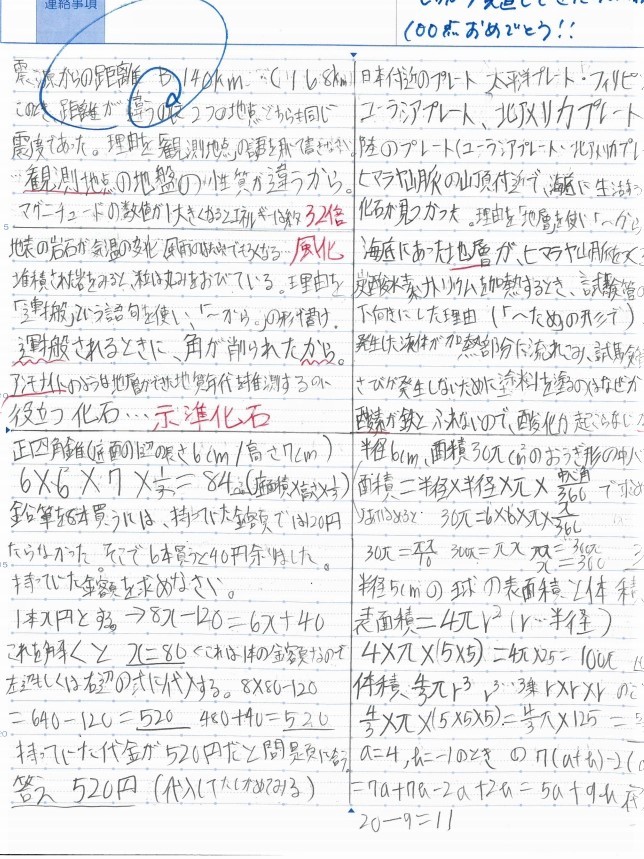 連絡事項
100点おめでとう!!
震源からの距離 B 140km C 168km
このとき距離が違うのに2つの地点でどちらも同じ
震度であった。理由を「観測地点」の語を用いて書きなさい。
観測地点の地盤の性質が違うから。
マグニチュードの数値が1大きくなるとエネルギーは約32倍
地表の岩石が気温の変化 風雨 できなくなる…風化
堆積された岩をみると、粒は丸みをおびている。理由を
「運搬」という語句を使い、「〜から。」の形で書け。
運搬されるときに、角が削られたから。
アンモナイトのような地層ができた地質年代を推測するのに
役立つ化石…示準化石
正四角錐(底面の1辺の長さ6cm/高さ7cm)
6×6×7×1/3=84 (底面積×高さ×1/3)
鉛筆を8本買うには、持っていた金額では120円
たらなかった。そこで6本買うと40円余りました。
持っていた金額を求めなさい。
1本x円とする→8x-120=6x+40
これを解くと x=80 <これは1本の金額なので
左辺もしくは右辺の式に代入する。8×80-120
=640-120=520 480+40=520
持っていた代金が520円だと問題に合う
答え 520円 (代入してたしかめてみる)
日本付近のプレート 太平洋プレート・フィリピ
ユーラシアプレート、北アメリカプレート
陸のプレート(ユーラシアプレート・北アメリカプレ
ヒマラヤ山脈の山頂付近で、海底に生活
化石が見つかった。理由を「地層」を使い「〜から
海底にあった地層が、ヒマラヤ山脈
炭酸水素ナトリウムを加熱するとき、試験管の
下向きにした理由(「〜ための形で)
発生した液体が加熱部分に流れこみ、試験管
さびが発生しないために塗料を塗るのはなぜか
酸素が鉄とふれないので、酸化が起こらない
半径6cm、面積30πcm²のおうぎ形の中心
面積=半径×半径×π×中心角/360で求め
30π=6×6×π×x/360
30π=πx/10 300π=πx πx=300π x=300
半径5cmの球の表面積と体積
表面積=4πr²(r…半径)
4×π×(5×5)=4π×25=100π
体積、4/3πr³ r³…3乗r×r×rの
4/3×π×(5×5×5)=4/3π×125=
a=4,b=-1のときの7(a+b)-
=7a+7b-2a+2b=5a+9b
20-9=11